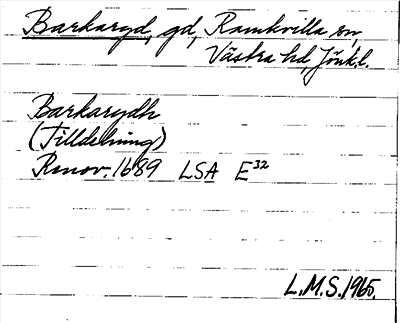 Barkaryd, gd, Ramkvilla sn,
Västra hd, Jönk.l.
Barkarydh
(Tilldelning)
Renov. 1689 LSA E32
L.M.S. 1965.